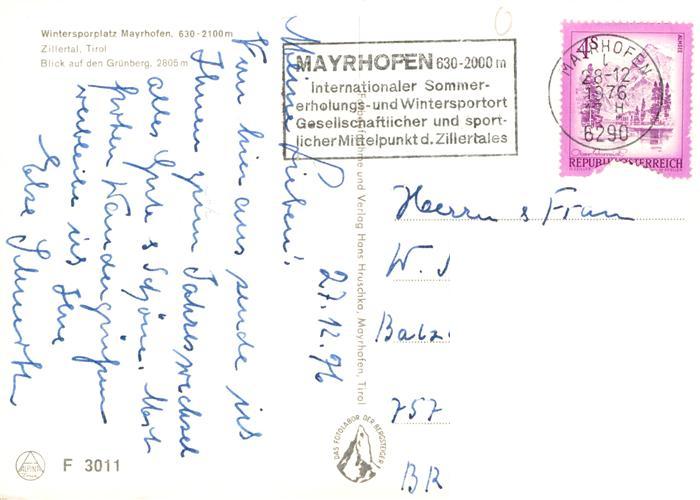 Wintersporplatz Mayrhofen, 630-2100m
Zillertal, Tirol
Blick auf den Grünberg, 2805m
MAYRHOFEN 630-2000m
Internationaler Sommer-
erholungs- und Wintersportort
Gesellschaftlicher und sport-
licher Mittelpunkt d. Zillertales
MAYRHOFEN
28-12
1976
6290
ALMSEE
REPUBLIK ÖSTERREICH
27.12.76
Meine Lieben!
Von hier aus sende ich
Ihnen zum Jahreswechsel
alles Gute & Schöne. Mit
frohen Wandergrüßen
verbleibe ich Ihre
Else
Herrn & Frau
W. J
Balz
757
BR
und Verlag Hans Hruschka, Mayrhofen, Tirol
DAS FOTOLABOR DER BERGSTEIGER
ALPINA
F 3011